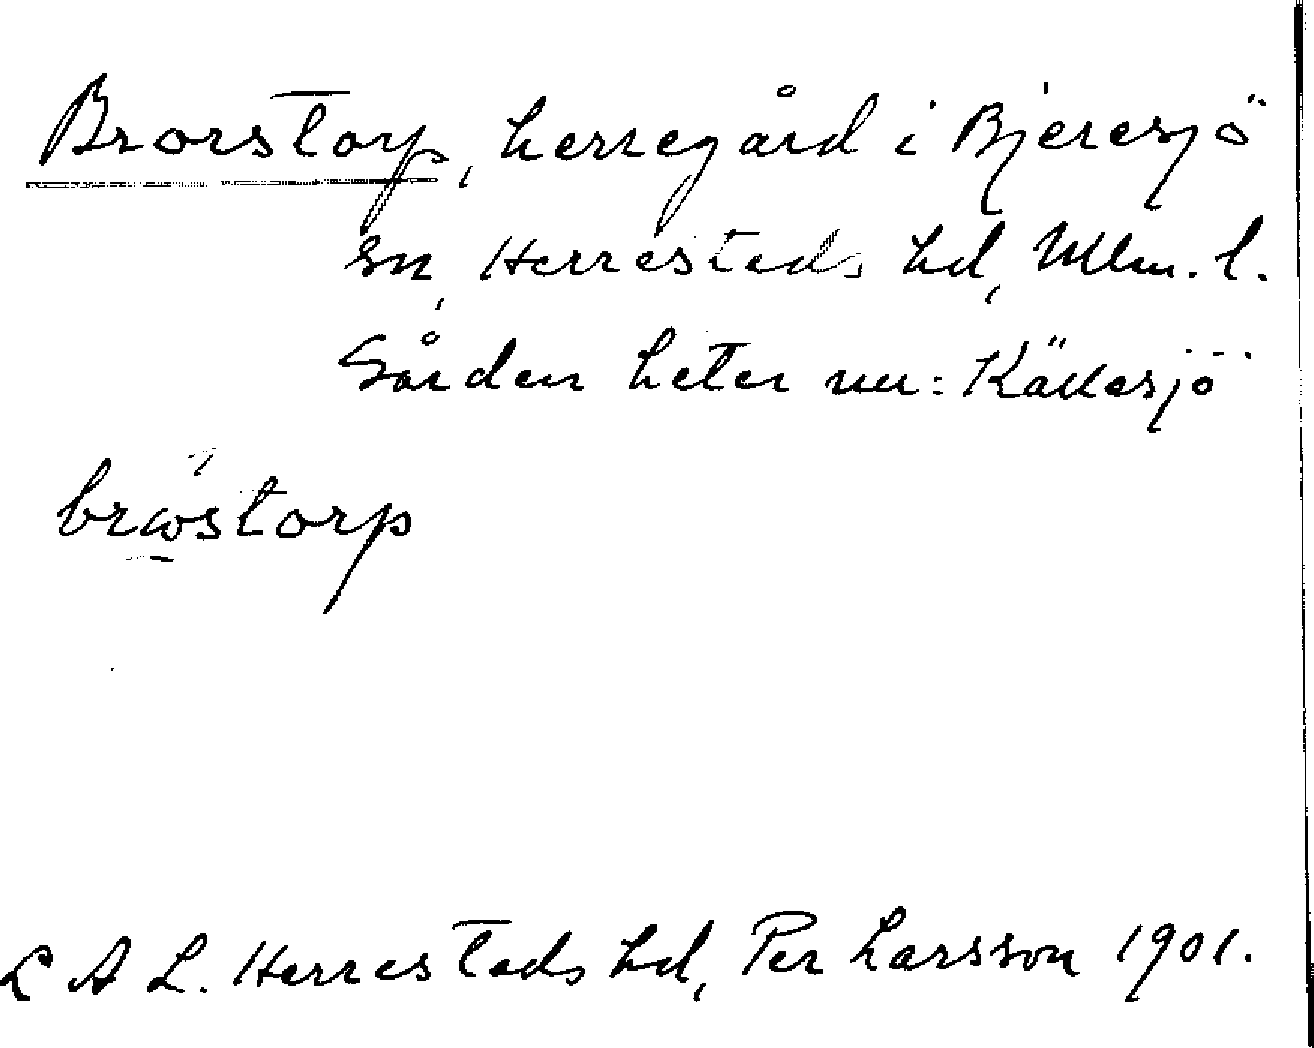 Brorstorp, herregård i Bjeresjö
sn, Herrestads hd, Mlm. l.
Gården heter nu: Källesjö
bröstorp
L A L. Herrestads hd, Per Larsson 1901.